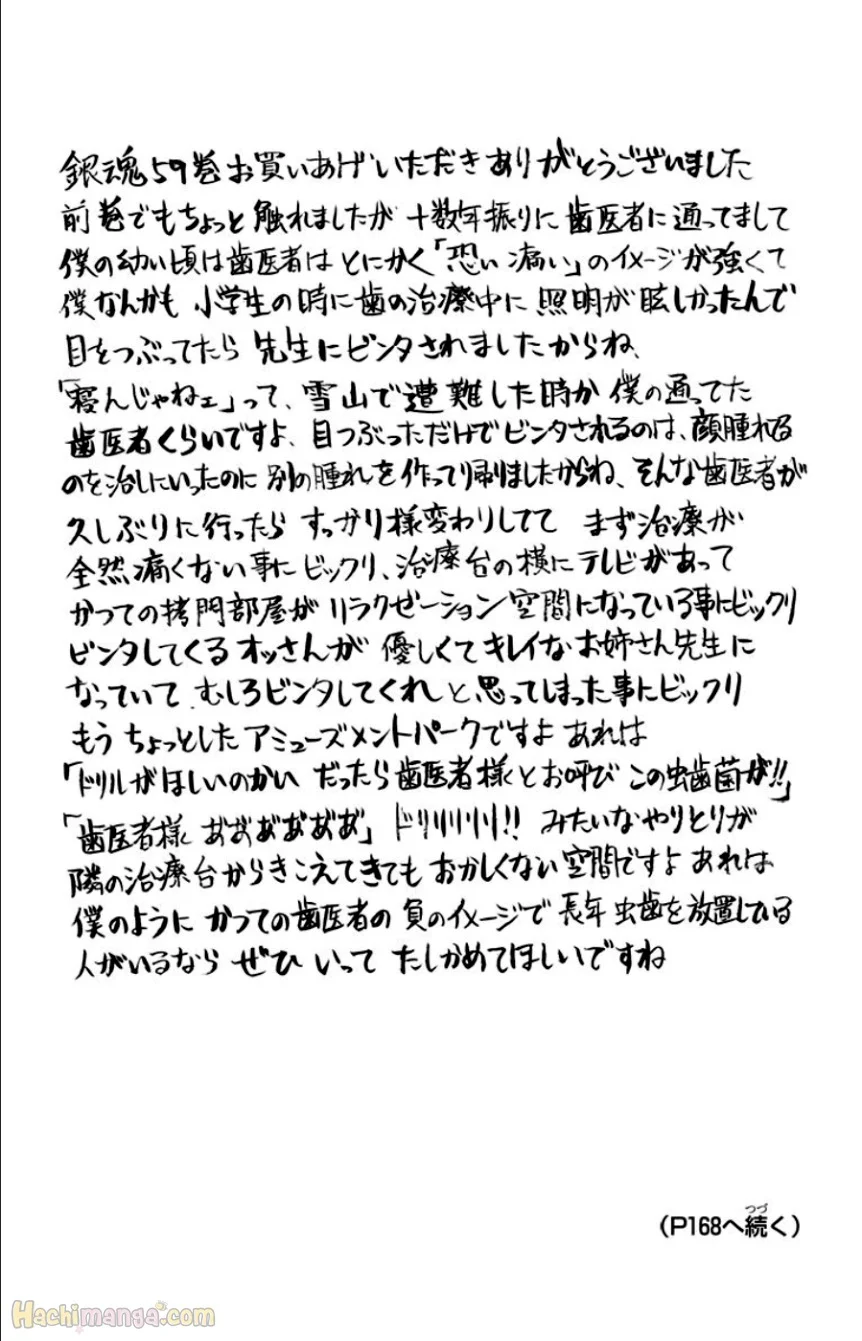 銀魂59巻お買いあげいただきありがとうございました
前巻でもちょっと触れましたが 十数年振りに歯医者に通ってまして
僕の幼い頃は歯医者はとにかく「恐い痛い」のイメージが強くて
僕なんかも 小学生の時に歯の治療中に照明が眩しかったんで
目をつぶってたら 先生にビンタされましたからね、
「寝んじゃねェ」って、雪山で遭難した時か 僕の通ってた
歯医者くらいですよ、目つぶっただけでビンタされるのは、顔腫れる
のを治しにいったのに 別の腫れを作って帰りましたからね、そんな歯医者が
久しぶりに行ったら すっかり様変わりしてて まず治療が
全然痛くない事にビックリ、治療台の横にテレビがあって
かつての拷問部屋が リラクゼーション空間になっている事にビックリ
ビンタしてくるオッさんが 優しくてキレイなお姉さん先生に
なっていて むしろビンタしてくれ と思ってしまった事にビックリ
もう ちょっとしたアミューズメントパークですよ あれは
「ドリルがほしいのかい だったら歯医者様とお呼び この虫歯菌が!!」
「歯医者様 あ゛あ゛あ゛あ゛あ゛あ゛」ドリリリリリ!! みたいなやりとりが
隣の治療台からきこえてきても おかしくない空間ですよ あれは
僕のように かつての歯医者の負のイメージで 長年虫歯を放置している
人がいるなら ぜひ いって たしかめてほしいですね
(P168へ続く)
つづ
Hachimanga.com